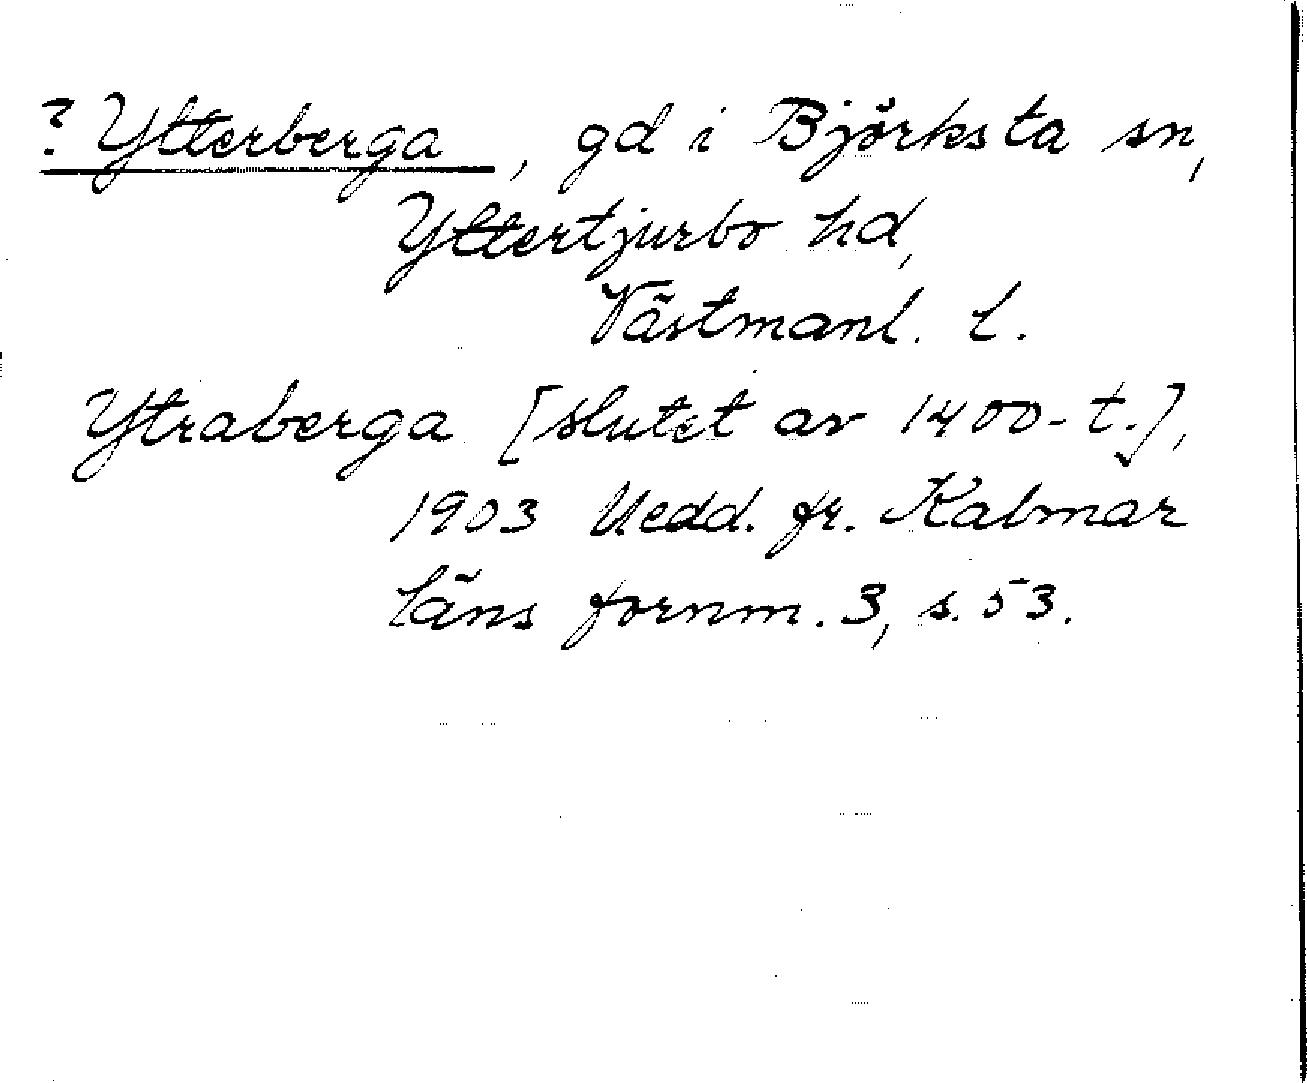 ? Ytterberga, gd i Björksta sn,
Yttertjurbo hd,
Västmanl. l.
Ytraberga [slutet av 1400-t.],
1903 Medd. fr. Kalmar
läns fornm. 3, s. 53.